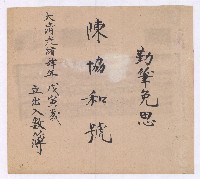 勤筆免思
陳協和號
大清光緒肆年戊寅歲
立出入數簿